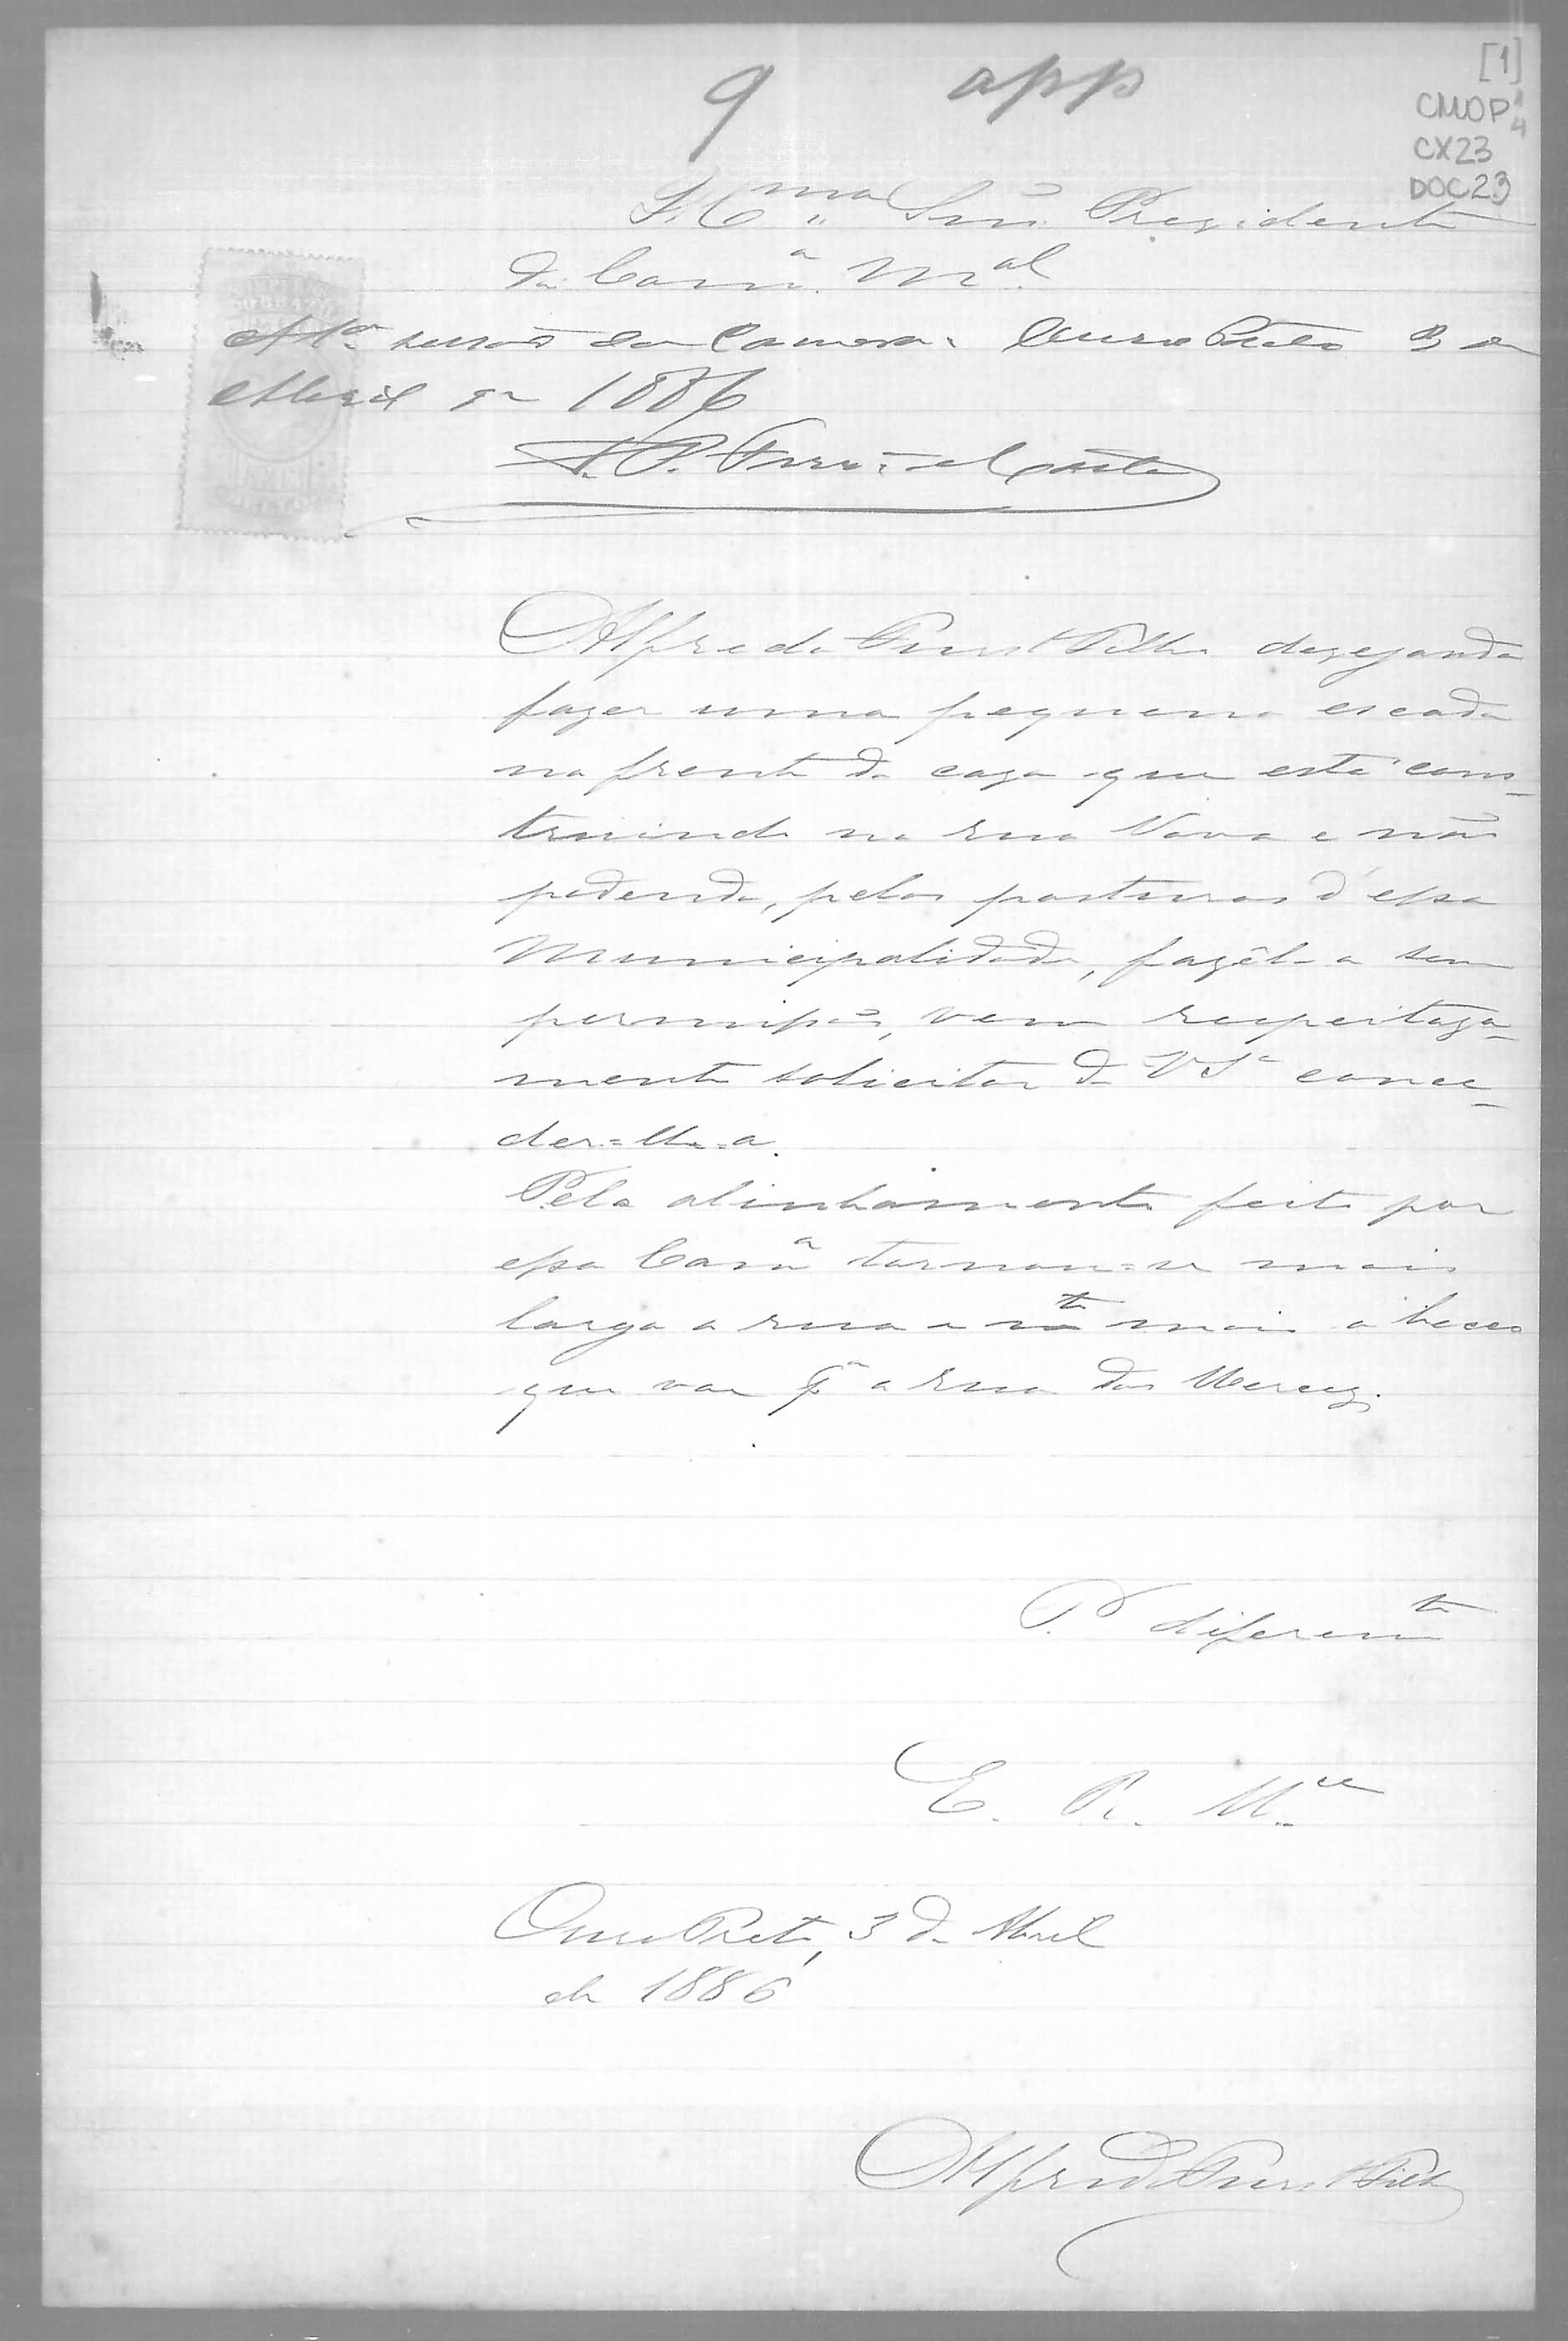 9 app
[1]
CMOP
CX23
DOC23
Ill.mo Snr. Presidente
da Camª. Mal.
sessão da Camera. Ouro Preto 3 de
Abril de 1886
Alfredo Furst Filho desejando
fazer uma pequena escada
na frente da caza que está cons-
truindo na rua Nova e não
podendo, pelas posturas d'essa
Municipalidade, fazêl-a sem
permissão, vem respeitoza-
mente solicitar de V Sª conce-
der=lh'a.
Pelo alinhamento feito por
essa Camª tornou=se mais
larga a rua e mais o becco
que vae pª a rua das Mercez.
P. diferemto
E. R. Mce
Ouro Preto, 3 de Abril
de 1886
Alfredo Furst Filho